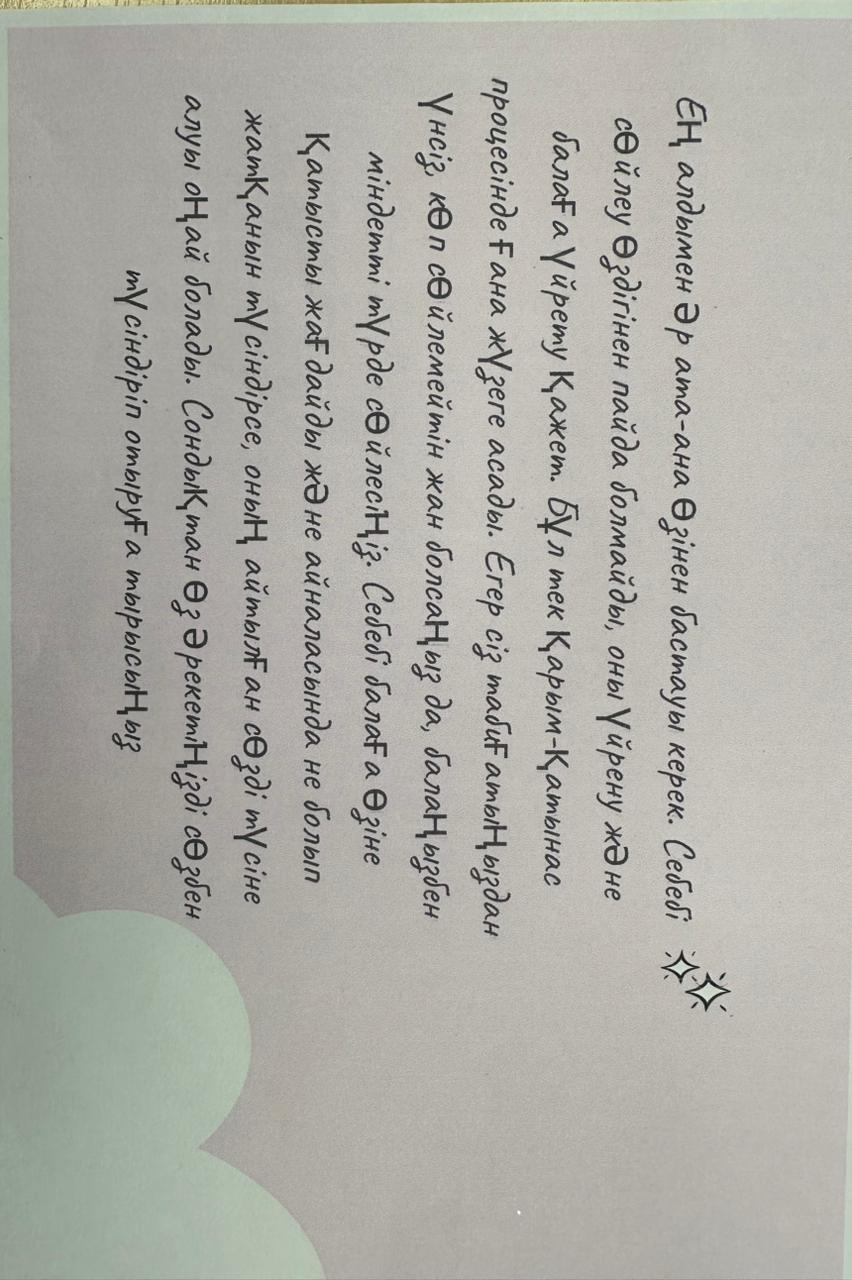 Ең алдымен әр ата-ана өзінен бастауы керек. Себебі
сөйлеу өздігінен пайда болмайды, оны үйрену және
балаға үйрету қажет. Бұл тек қарым-қатынас
процесінде ғана жүзеге асады. Егер сіз табиғатыңыздан
үнсіз, көп сөйлемейтін жан болсаңыз да, балаңызбен
міндетті түрде сөйлесіңіз. Себебі балаға өзіне
қатысты жағдайды және айналасында не болып
жатқанын түсіндірсе, оның айтылған сөзді түсіне
алуы оңай болады. Сондықтан өз әрекетіңізді сөзбен
түсіндіріп отыруға тырысыңыз